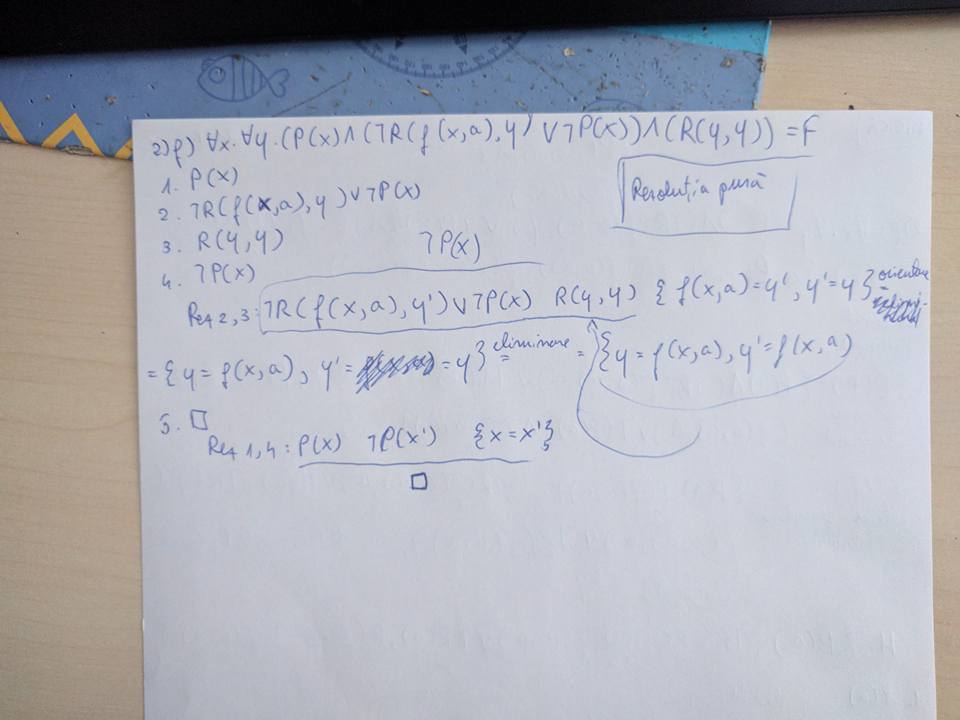 2)f) ∀x.∀y.(P(x)∧(¬R(f(x,a),y) ∨¬P(x))∧(R(y,y)) = F
Rezoluția pură
1. P(x)
2. ¬R(f(x,a),y)∨¬P(x)
3. R(y,y)
4. ¬P(x)
¬P(x)
Rez 2,3: ¬R(f(x,a),y')∨¬P(x) R(y,y) {f(x,a)=y', y'=y} orientare =
= {y=f(x,a), y'= =y} eliminare = = {y=f(x,a), y'=f(x,a)}
5. □
Rez 1,4: P(x) ¬P(x') {x=x'}
□